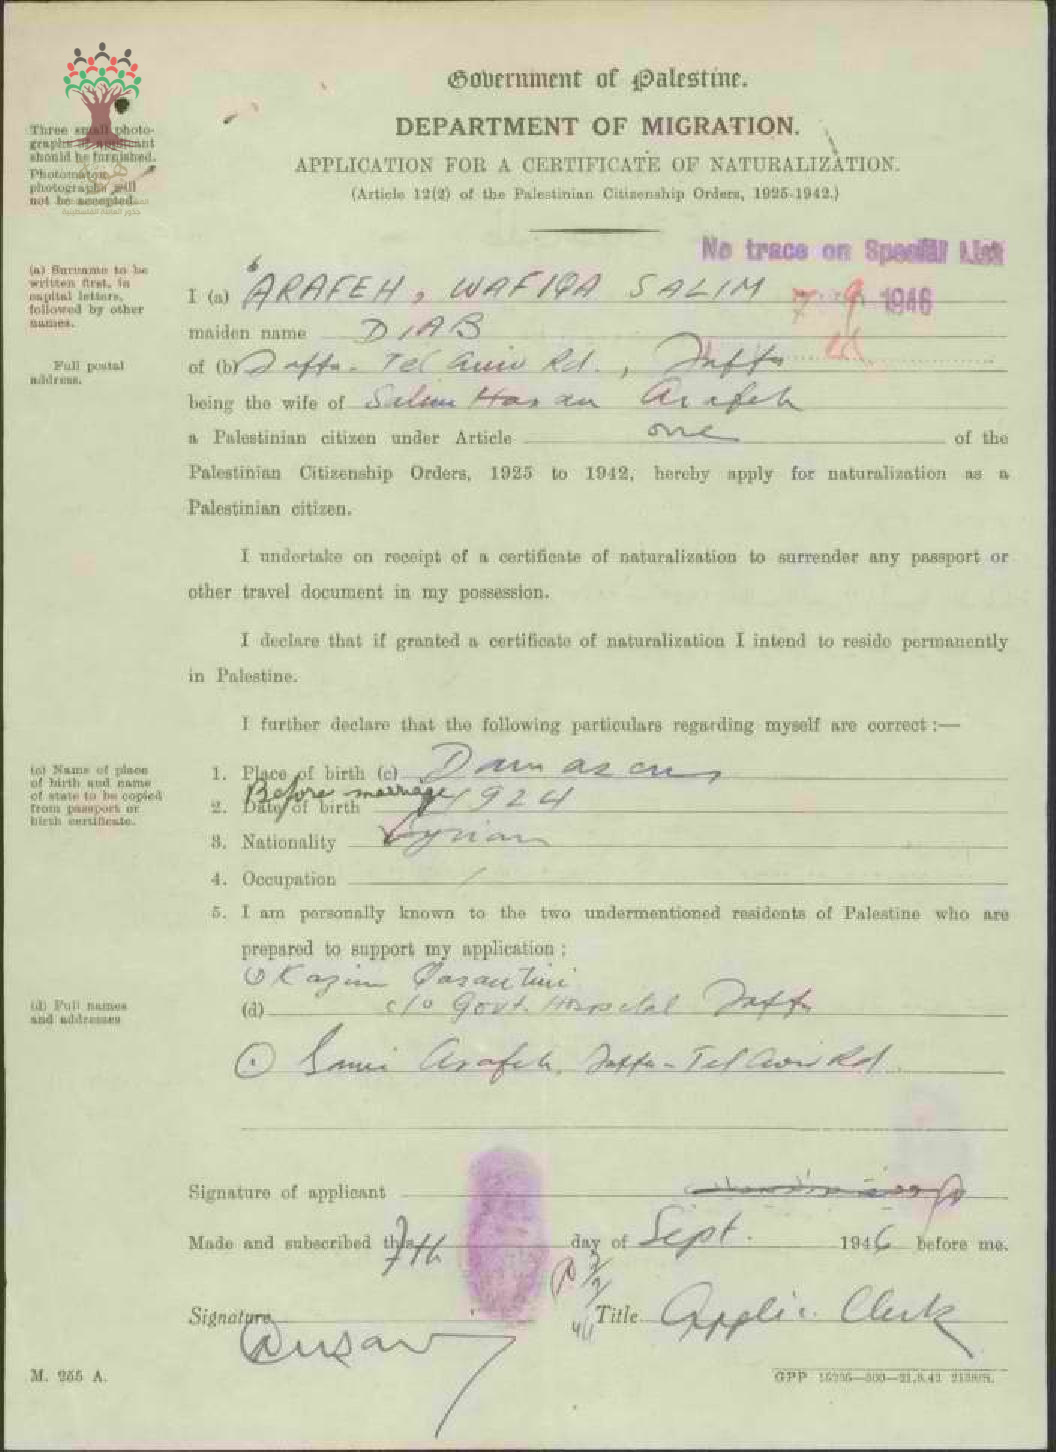 Government of Palestine.
DEPARTMENT OF MIGRATION.
APPLICATION FOR A CERTIFICATE OF NATURALIZATION.
(Article 12(2) of the Palestinian Citizenship Orders, 1925-1942.)
Three small photo-
graphs of applicant
should be furnished.
Photomaton
photographs will
not be accepted.
No trace on Special List
7 9 1946
(a) Surname to be
written first, in
capital letters,
followed by other
names.
I (a) ARAFEH, WAFIQA SALIM
maiden name DIAB
Full postal
address.
of (b) Jaffa-Tel Aviv Rd., Jaffa
being the wife of Salim Hasan Arafeh
a Palestinian citizen under Article one of the
Palestinian Citizenship Orders, 1925 to 1942, hereby apply for naturalization as a
Palestinian citizen.
I undertake on receipt of a certificate of naturalization to surrender any passport or
other travel document in my possession.
I declare that if granted a certificate of naturalization I intend to reside permanently
in Palestine.
I further declare that the following particulars regarding myself are correct :—
(c) Name of place
of birth and name
of state to be copied
from passport or
birth certificate.
1. Place of birth (c) Damascus
Before marriage
2. Date of birth 1924
3. Nationality Syrian
4. Occupation /
5. I am personally known to the two undermentioned residents of Palestine who are
prepared to support my application :
Kazim
(d) Full names
and addresses
(d) c/o Govt. Hospital Jaffa
Sami Arafeh, Jaffa-Tel Aviv Rd.
Signature of applicant
Made and subscribed this 7th day of Sept. 1946 before me.
7/9/46
Signature Title Applic. Clerk
M. 255 A.
GPP